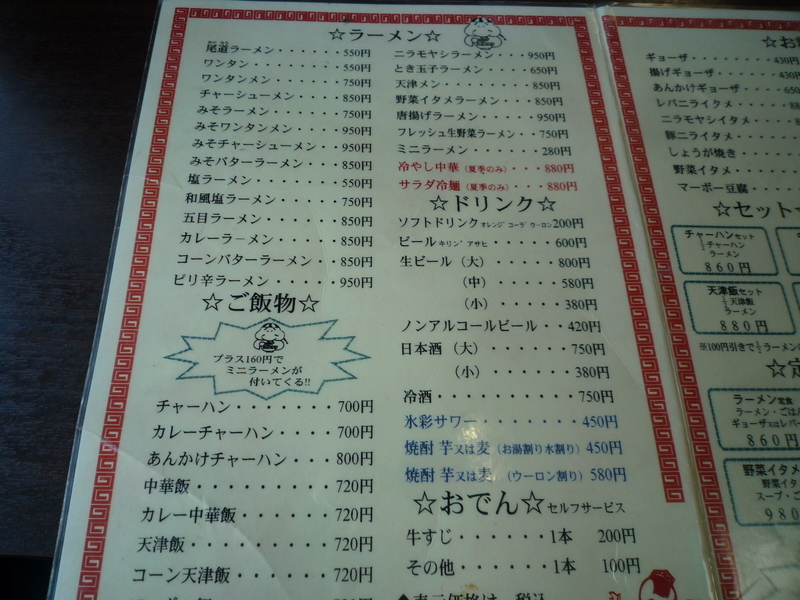 ☆ラーメン☆
尾道ラーメン・・・・・・550円
ワンタン・・・・・・・・550円
ワンタンメン・・・・・・750円
チャーシューメン・・・・850円
みそラーメン・・・・・・750円
みそワンタンメン・・・・950円
みそチャーシューメン・・950円
みそバターラーメン・・・850円
塩ラーメン・・・・・・・550円
和風塩ラーメン・・・・・750円
五目ラーメン・・・・・・850円
カレーラーメン・・・・・850円
コーンバターラーメン・・850円
ピリ辛ラーメン・・・・・950円
☆ご飯物☆
プラス160円で
ミニラーメンが
付いてくる!!
チャーハン・・・・・・・700円
カレーチャーハン・・・・700円
あんかけチャーハン・・・800円
中華飯・・・・・・・・・720円
カレー中華飯・・・・・・720円
天津飯・・・・・・・・・720円
コーン天津飯・・・・・・720円
ニラモヤシラーメン・・・950円
とき玉子ラーメン・・・・650円
天津メン・・・・・・・・850円
野菜イタメラーメン・・・850円
唐揚げラーメン・・・・・950円
フレッシュ生野菜ラーメン・・750円
ミニラーメン・・・・・・280円
冷やし中華（夏季のみ）・・・880円
サラダ冷麺（夏季のみ）・・・880円
☆ドリンク☆
ソフトドリンク オレンジ コーラ ウーロン 200円
ビール キリン アサヒ・・・・・600円
生ビール（大）・・・・・800円
（中）・・・・・580円
（小）・・・・・380円
ノンアルコールビール・・420円
日本酒（大）・・・・・・750円
（小）・・・・・・380円
冷酒・・・・・・・・・・750円
氷彩サワー・・・・・・・450円
焼酎 芋又は麦（お湯割り水割り）450円
焼酎 芋又は麦（ウーロン割り）580円
☆おでん☆セルフサービス
牛すじ・・・・・・1本 200円
その他・・・・・・1本 100円
◆表示価格は、税込
☆お
ギョーザ・・・・・・・430円
揚げギョーザ・・・・・430円
あんかけギョーザ・・・650
レバニライタメ・・・・
ニラモヤシイタメ・・・
豚ニライタメ・・・・・
しょうが焼き・・・・・
野菜イタメ・・・・・・
マーボー豆腐・・・・・
☆セット
チャーハンセット
½チャーハン
ラーメン
860円
天津飯セット
½天津飯
ラーメン
880円
※100円引きで½ラーメンに
☆定
ラーメン定食
ラーメン・ごはん
ギョーザ又はレバー
860円
野菜イタメ
スープ・ご
980